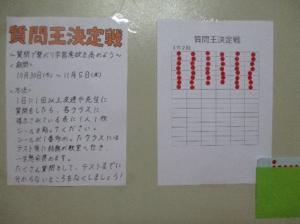 質問王決定戦
〜質問で繋がり学習意欲を高めよう〜
・期間
10月30日(木)〜11月5日(水)
・方法
1日に1回以上友達や先生に
質問をしたら、各クラスに
掲示されている表に1人1枚
シールを貼ってください。
シールが1番多かったクラスには
テスト後に
たくさん質問をして、テストまでに
分からないところをなくしましょう!
質問王決定戦